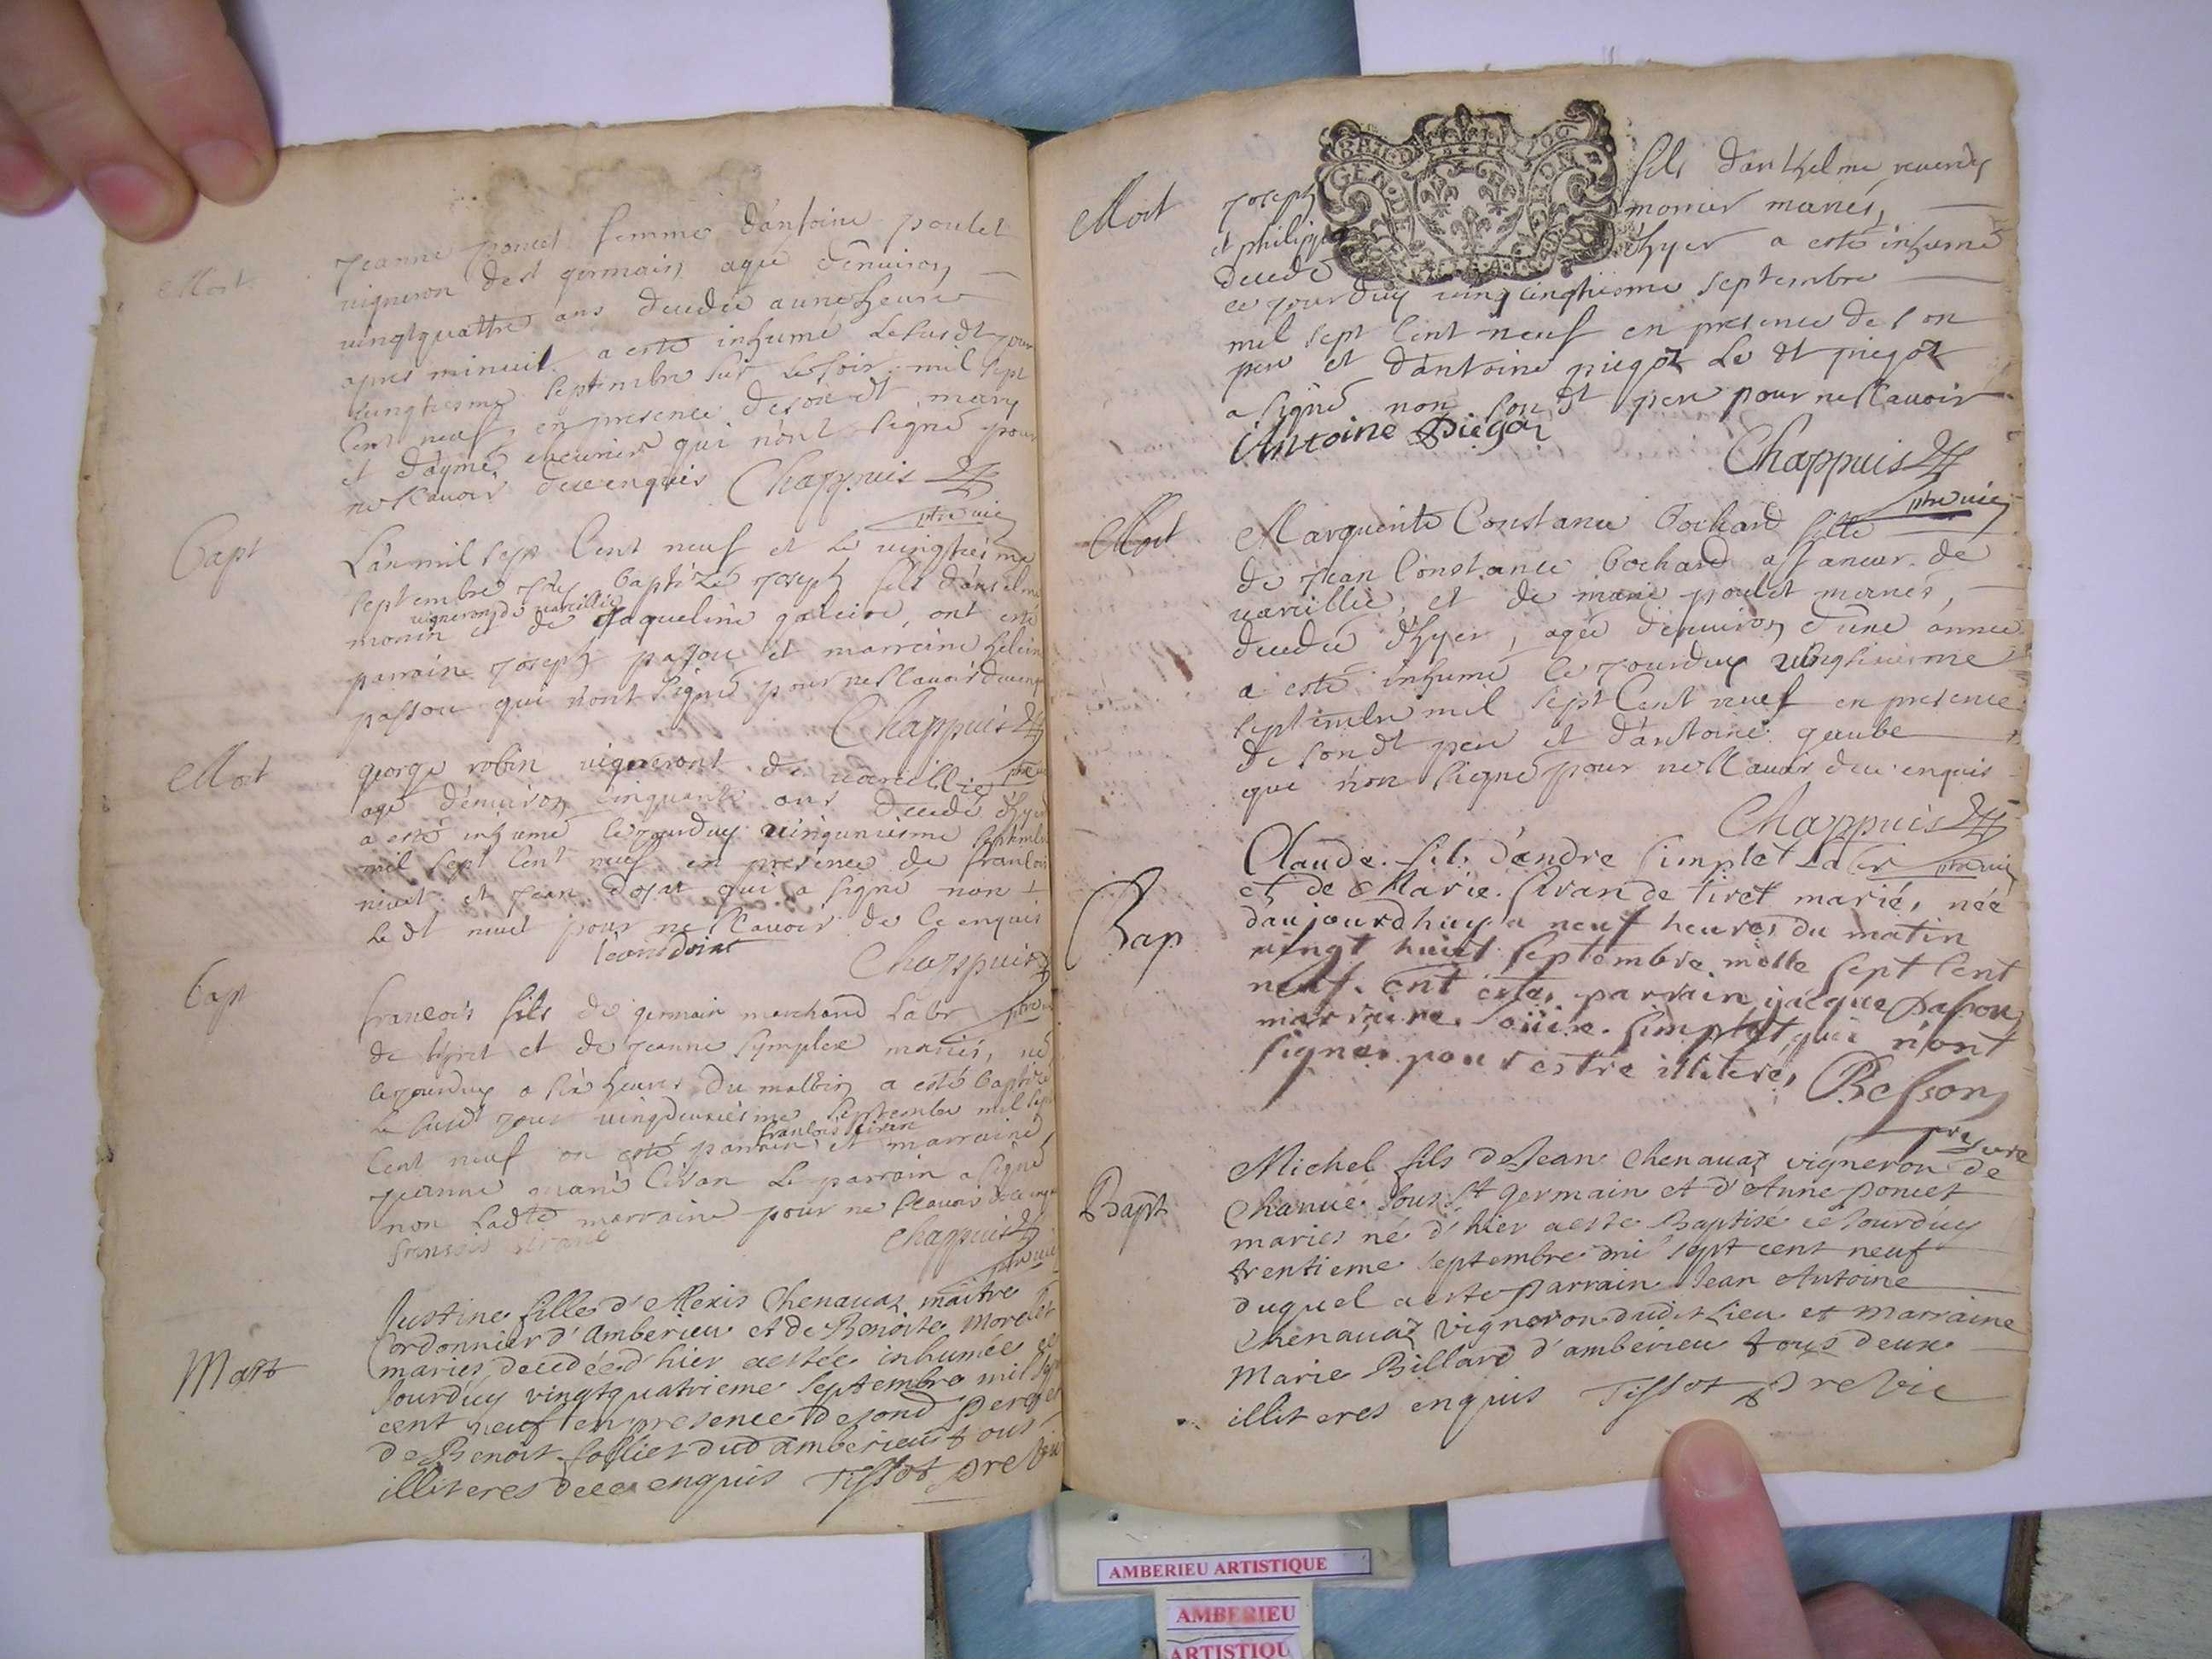 Mort
Jeanne poncet femme d'antoine poulet
vigneron de st germain agée d'environ
vingtquattre ans decedée a une heure
apres minuit a esté inhumé le susdt jour
septembre sur le soir mil sept
Cent neuf, en presence de son dt mary
et d'aymé cucurier qui n'ont signé pour
ne scavoir de ce enquis Chappuis
ptre vic
Bapt
L'an mil sept Cent neuf et le vingtiesme
septembre baptizé Joseph fils d'anselme
vigneron de vareillie
monin et de Jaqueline galeire, ont esté
parrain Joseph passou et marreine helein
passou qui n'ont signé pour ne scavoir de ce enq
Chappuis
ptre
Mort
george robin vigneront de vareillie
agé d'environ cinquante ans decedé d'hyer
a esté inhumé ce jourduy vingunieme septembre
mil sept Cent neuf en presence de francois
nivet et Jean dojat qui a signé non
le dt nivet pour ne scavoir de ce enquis
Chappuis
Bapt
francois fils de germain marchand labr
ptre
de tyret et de Jeanne symplex mariés, né
ce jourduy a six heures du mattin a esté baptizé
le susdt jour vingdeuxiesme septembre mil sept
francois sivan
Cent neuf on esté parrain et marraine,
Jeanne marie sivan le parrain a signé
non ladte marraine pour ne scavoir de ce enquis
fransois sivane
Chappuis
ptre vic
Mort
Justine fille d'Alexis Chenauaz maitre
Cordonnier d'Amberieu et de Benoite Morelet
maries decedée d'hier aestée inhumée ce
Jourd'uy vingtquatrieme septembre mil sept
cent neuf en presence de sond pere et
de Benoit folliet dud amberieu tous
illiteres dece enquis Tissot pre Vic
Mort
Joseph fils d'anthelme reverdy
et philippa monier mariés,
decedé d'hyer a esté inhumé
ce jourduy vingcinqhiesme septembre
mil sept Cent neuf en presence de son
pere et d'antoine piegoz le dt piegoz
a signé non son dt pere pour ne scavoir
Antoine Piegoz
Chappuis
ptre vic
Mort
Marguerite Constance bochard fille
de Jean Constance bochard affaneur de
vareillie, et de marie poulet mariés,
decedée d'hyer, agée d'environ d'une année
a esté inhumé ce jourduy
septembre mil sept Cent neuf en presence
de son dt pere et d'antoine gaube
qui n'on signé pour ne scavoir de ce enquis
Chappuis
ptre vic
Bap
Claude fils d'andre simplet labr
et de Marie sivan de tiret marié, née
daujourdhuy a neuf heures du matin
vingt huict septembre mille sept cent
neuf. ont estés parrain jacque passou
marraine loüise simplet, qui n'ont
signer pour estre illiteres, Besson
pre vic
Bapt
Michel fils de Jean Chenauaz vigneron de
Chanué sous st germain et d'Anne poncet
maries né d'hier aeste Baptisé ce Jourd'uy
trentieme septembre mil sept cent neuf
duquel aeste parrain Jean Antoine
Chenauaz vigneron dudit Lieu et marraine
Marie Billard d'amberieu tous deux
illiteres enquis Tissot pre Vic
AMBERIEU ARTISTIQUE
AMBERIEU
ARTISTIQU